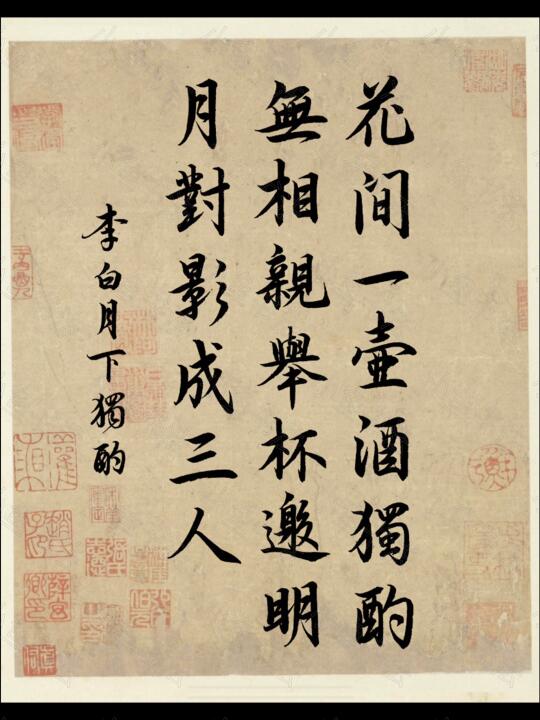 花间一壶酒獨酌
無相親舉杯邀明
月對影成三人
李白月下獨酌